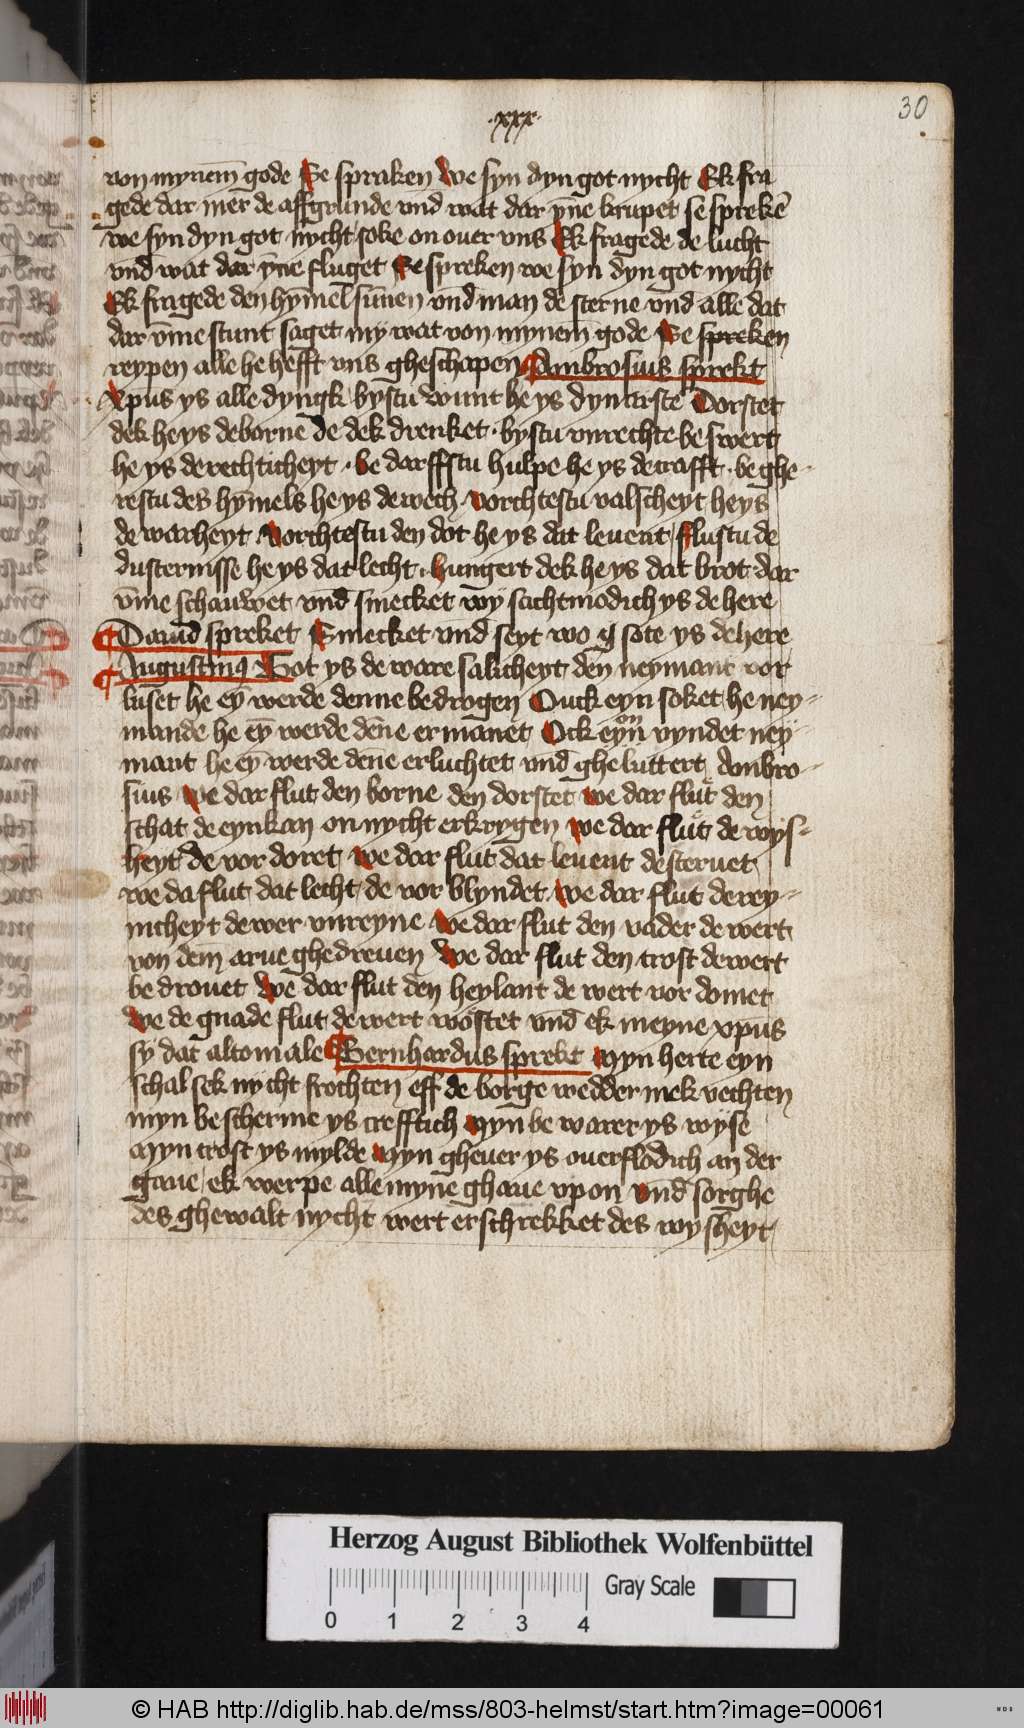 ·xxx·
30
von mynem̄ gode Se spraken We syn dyn got nycht Ek fra
gede dar mer de affgrunde vnd wat dar ȳne krupet se sprekē
we syn dyn got nycht soke on ouer vns Ek fragede de lucht
vnd̄ wat dar ȳne fluget Se spreken we syn dyn got nycht
Ek fragede den hȳmel sūnen vnd̄ man de sterne vnd alle dat
dar vm̄e stunt saget my wat von mynem̄ gode Se spreken
repen alle he hefft vns gheschapen Ambrosius sprekt
Xpus ys alle dyngk bystu wunt he ys dyn arste Dorstet
dek he ys de borne de dek drenket · bystu vnrechte beswert
he ys de rechticheyt · be darffstu hulpe he ys de crafft · beghe-
restu des hȳmels he ys de wech · vorchtestu valscheyt he ys
de warheyt · Vorchtestu den dot he ys dat leuent flustu de
dusternisse he ys dat lecht · hungert dek he ys dat brot dar
vm̄e schauwet vnd̄ smecket wy sachtmodich ys de here
Dauid spreket Smecket vnd̄ seyt wo sote ys de here
Augustinus Got ys de ware salicheyt den neymant vor
luset he eȳ werde denne bedrogen Ouck eyn soket he ney-
mande he eȳ werde dēne ermanet Ock eyn on vyndet ney-
mant he eȳ werde dēne erluchtet vnd̄ ghe luttert Ambro-
sius we dar flut den borne den dorstet we dar flut den
schat de eyn kan on nycht erkrygen we dar flut de wys-
heyt de vor doret we dar flut dat leuent de steruet
we da flut dat lecht de vor blyndet we dar flut de rey-
nicheyt de wer vnreyne we dar flut den vader de wert
von dem̄ arue ghedreuen We dar flut den trost de wert
bedrouet We dar flut den heylant de wert vor domet
We de gnade flut de wert wostet vnd̄ ek meyne xpus
sy dat altomale Bernhardus sprekt Myn herte eyn
schal sek nycht frochten eff de borge wedder mek vechten
myn bescherme ys crefftich Myn bewarer ys wyse
Myn trost ys mylde Myn gheuer ys ouerflodich an der
gaue ek werpe alle myne ghaue vp on vnd̄ sorghe
des ghewalt nycht wert erschrekket des wysheyt
Herzog August Bibliothek Wolfenbüttel
Gray Scale
0 1 2 3 4
© HAB http://diglib.hab.de/mss/803-helmst/start.htm?image=00061